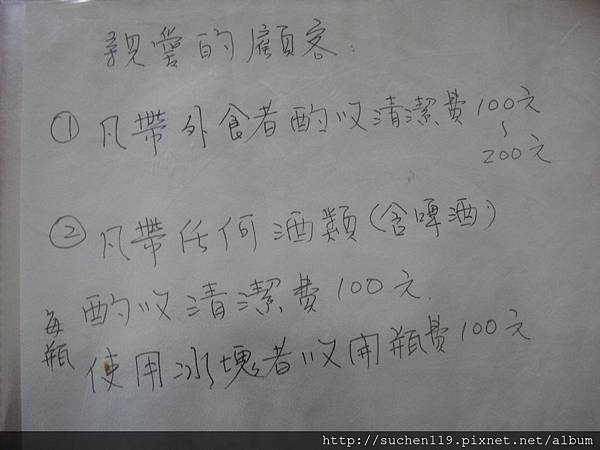 親愛的顧客:
① 凡帶外食者酌收清潔費100元
~
200元
② 凡帶任何酒類(含啤酒)
每瓶
酌收清潔費100元.
使用冰塊者收開瓶費100元
http://suchen119.pixnet.net/album